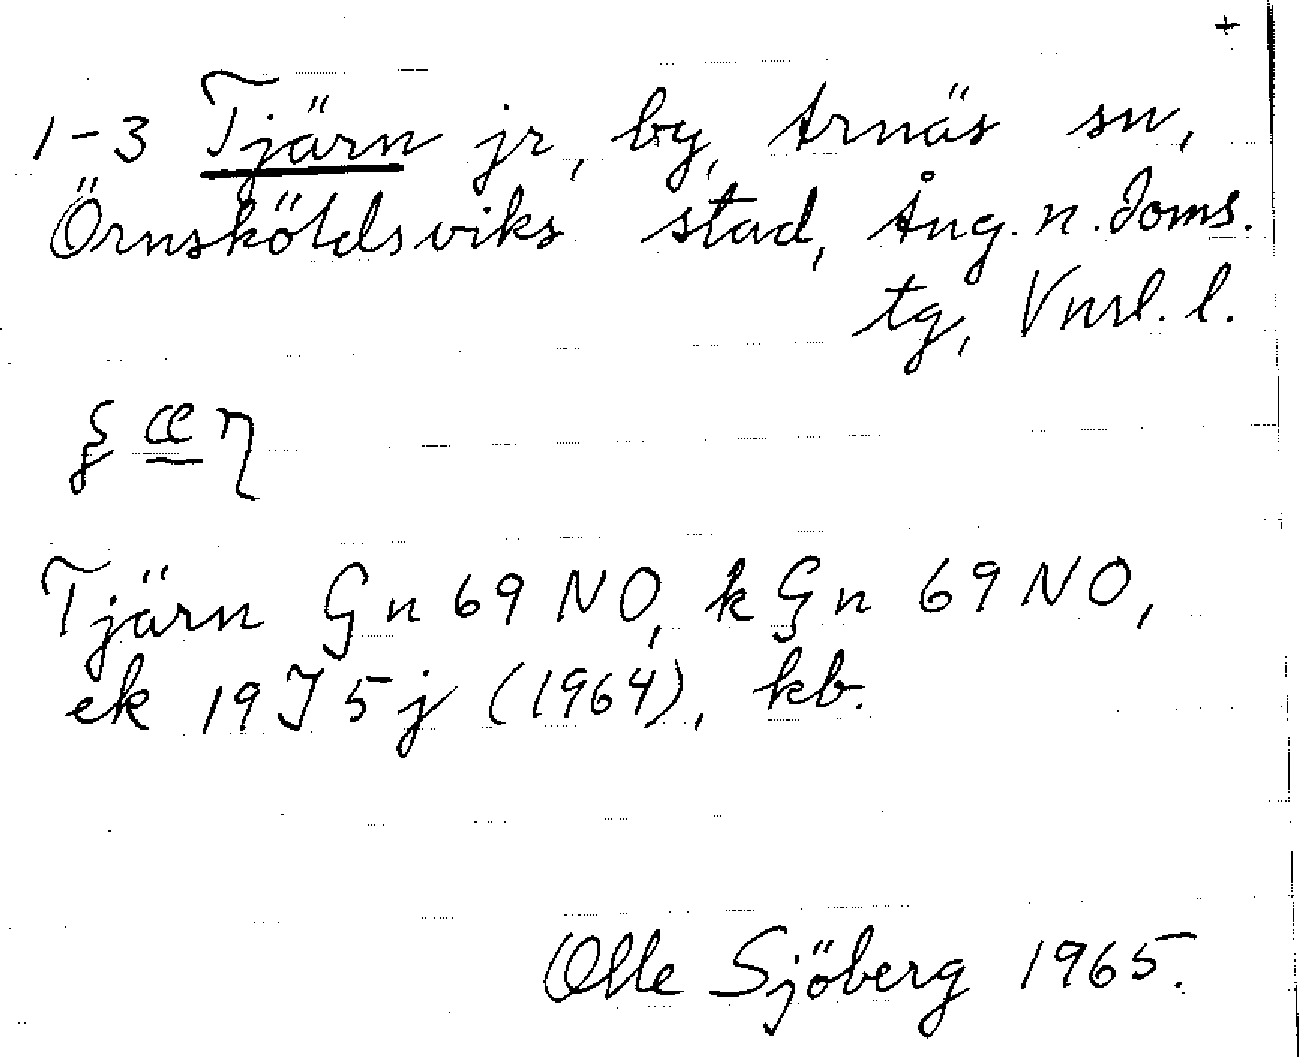 +
1-3 Tjärn jr, by, Arnäs sn,
Örnsköldsviks stad, Ång. n. doms.
tg, Vnrl. l.
Tjärn Gn 69 NO, k Gn 69 NO,
ek 19 J 5 j (1964), kb.
Olle Sjöberg 1965.